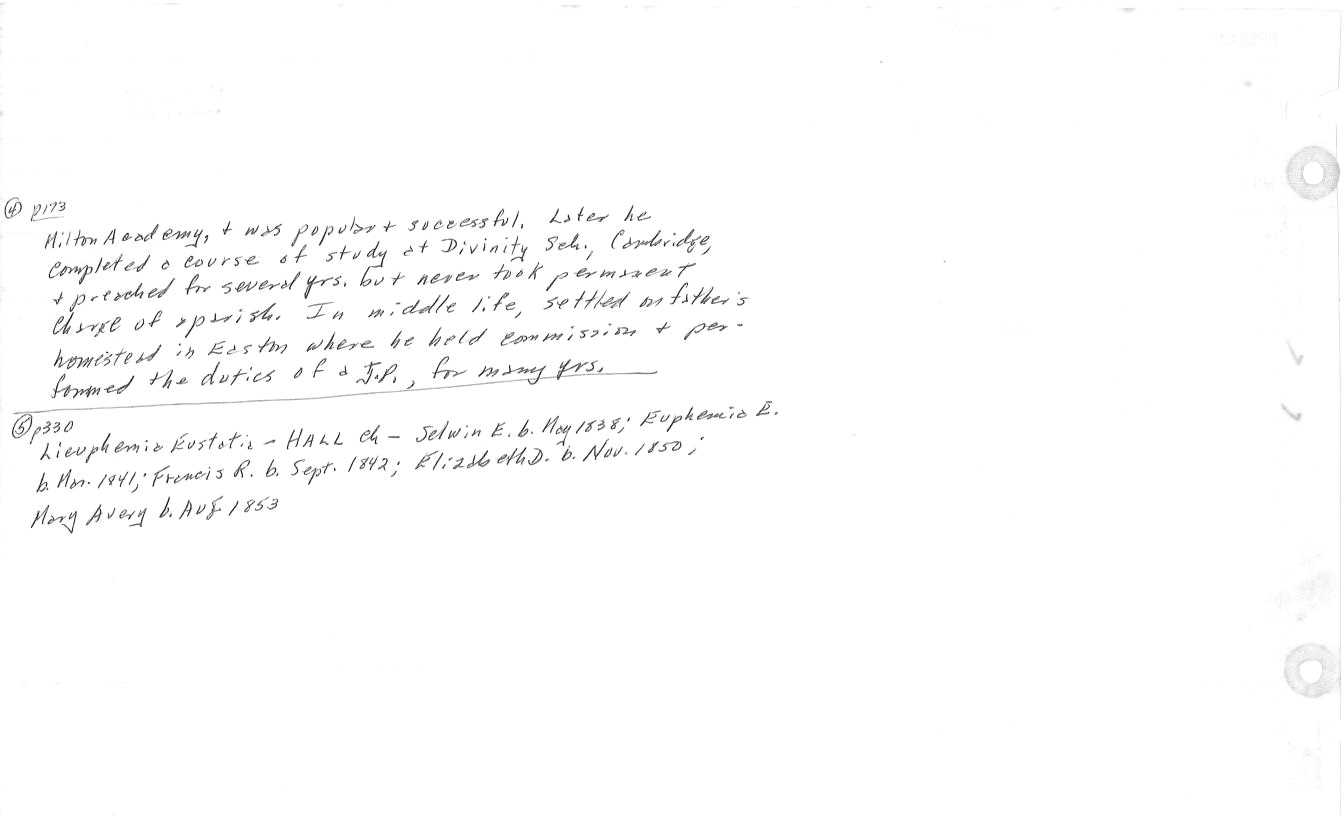 ④ p173
Milton Academy, + was popular + successful. Later he
completed a course of study at Divinity Sch., Cambridge,
+ preached for several yrs. but never took permanent
charge of a parish. In middle life, settled on father's
homestead in Easton where he held commission + per-
formed the duties of a J.P., for many yrs.
⑤ p330
Lieuphemia Eustatia - HALL ch - Selwin E. b. May 1838; Euphemia E.
b. Mar. 1841; Francis R. b. Sept. 1842; Elizabeth D. b. Nov. 1850;
Mary Avery b. Aug 1853